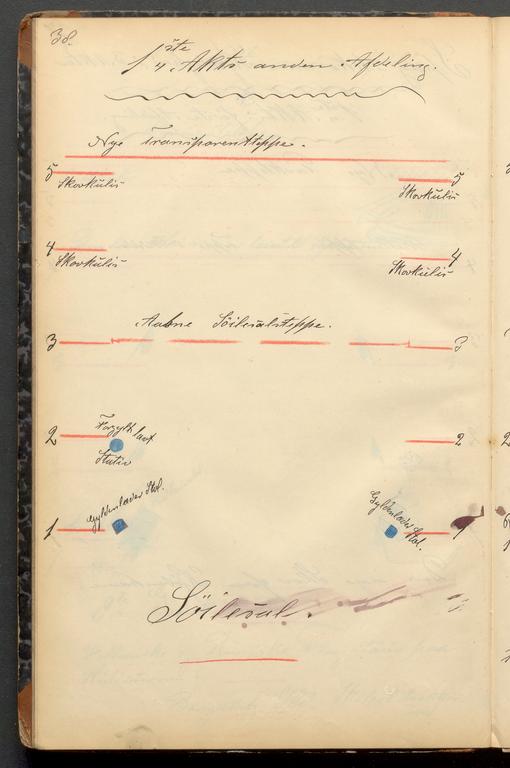 38.
1ste Akts anden Afdeling.
Nye Transparentteppe.
5 5
Skovkulis Skovkulis
4 4
Skovkulis Skovkulis
Aabne Söilesalsteppe.
3 3
Forgylt lavt
2 2
Stativ
Gyldenlæder Stol. Gyldenlæder Stol.
1 1
Söilesal.